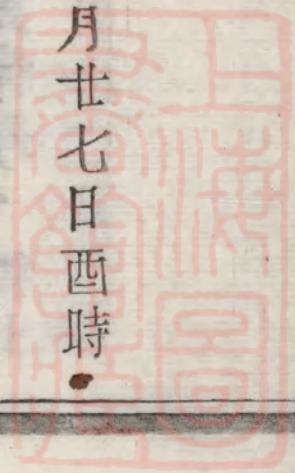 月廿七日酉時
上海圖書館藏